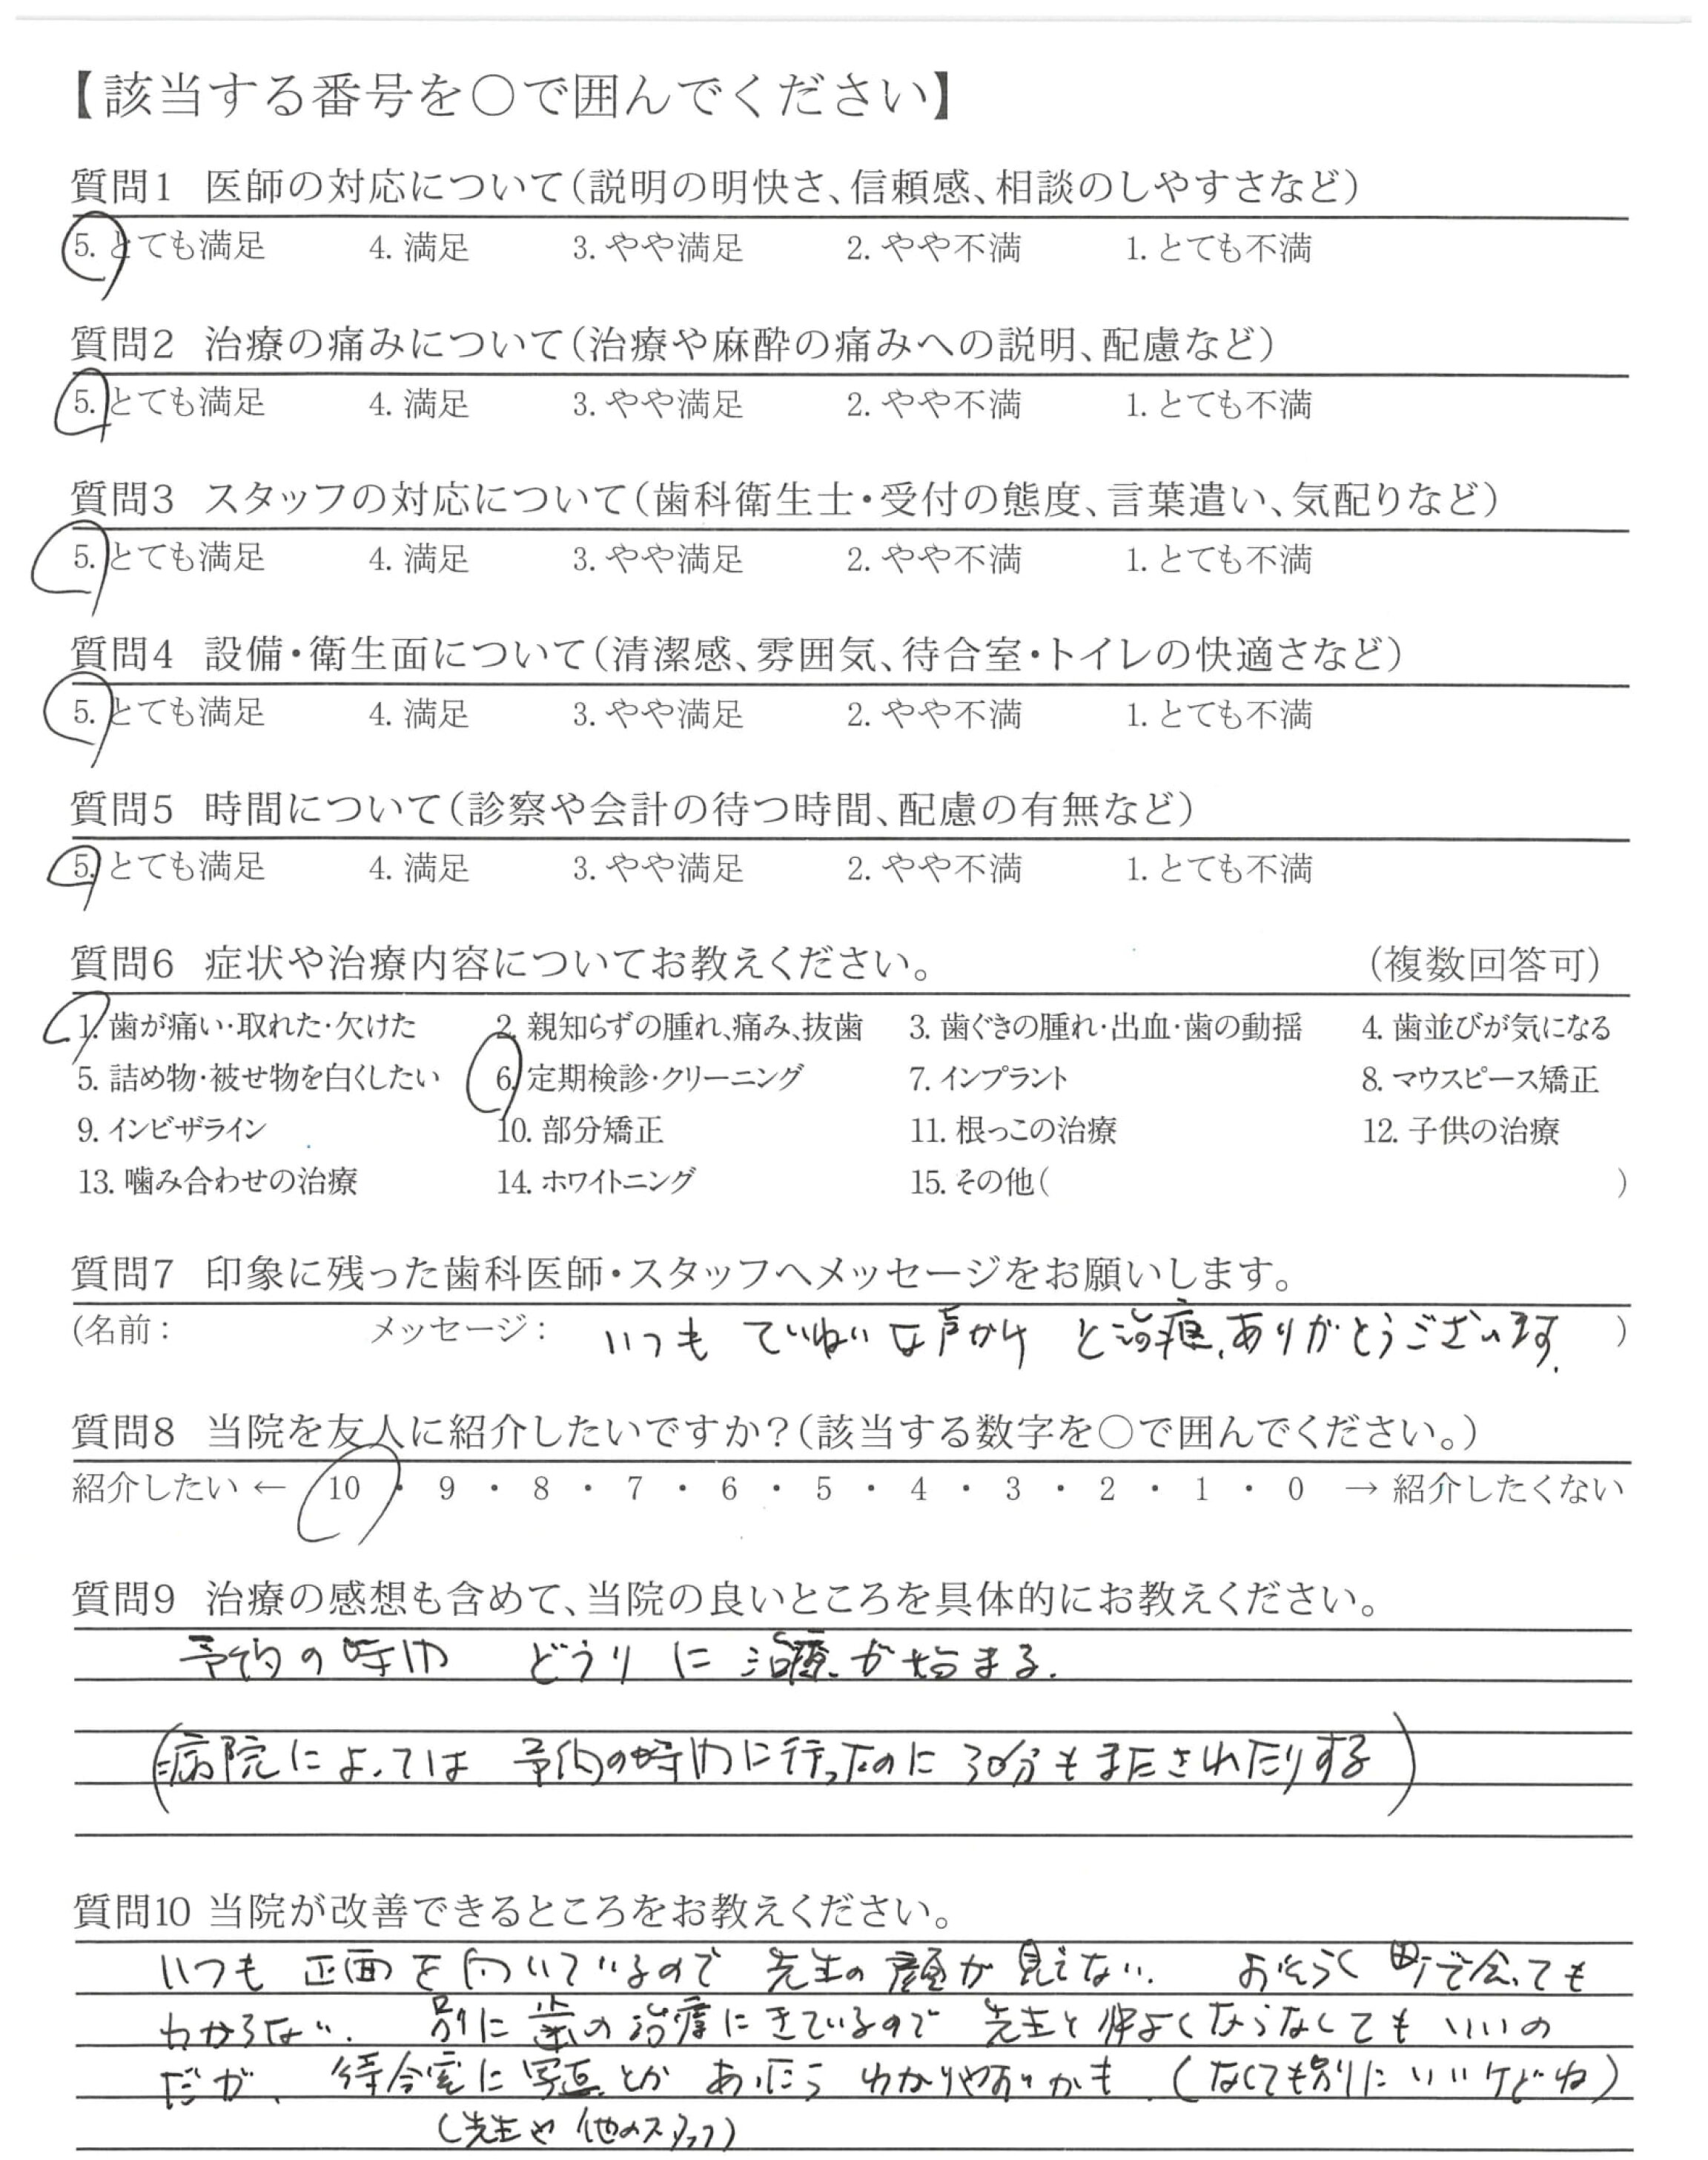 【該当する番号を○で囲んでください】
質問1 医師の対応について(説明の明快さ、信頼感、相談のしやすさなど)
5. とても満足 4. 満足 3. やや満足 2. やや不満 1. とても不満
質問2 治療の痛みについて(治療や麻酔の痛みへの説明、配慮など)
5. とても満足 4. 満足 3. やや満足 2. やや不満 1. とても不満
質問3 スタッフの対応について(歯科衛生士・受付の態度、言葉遣い、気配りなど)
5. とても満足 4. 満足 3. やや満足 2. やや不満 1. とても不満
質問4 設備・衛生面について(清潔感、雰囲気、待合室・トイレの快適さなど)
5. とても満足 4. 満足 3. やや満足 2. やや不満 1. とても不満
質問5 時間について(診察や会計の待つ時間、配慮の有無など)
5. とても満足 4. 満足 3. やや満足 2. やや不満 1. とても不満
質問6 症状や治療内容についてお教えください。 (複数回答可)
1. 歯が痛い・取れた・欠けた 2. 親知らずの腫れ、痛み、抜歯 3. 歯ぐきの腫れ・出血・歯の動揺 4. 歯並びが気になる
5. 詰め物・被せ物を白くしたい 6. 定期検診・クリーニング 7. インプラント 8. マウスピース矯正
9. インビザライン 10. 部分矯正 11. 根っこの治療 12. 子供の治療
13. 噛み合わせの治療 14. ホワイトニング 15. その他( )
質問7 印象に残った歯科医師・スタッフへメッセージをお願いします。
(名前: メッセージ: いつも ていねいな声かけ と治療、ありがとうございます. )
質問8 当院を友人に紹介したいですか?(該当する数字を○で囲んでください。)
紹介したい ← 10 ・ 9 ・ 8 ・ 7 ・ 6 ・ 5 ・ 4 ・ 3 ・ 2 ・ 1 ・ 0 → 紹介したくない
質問9 治療の感想も含めて、当院の良いところを具体的にお教えください。
予約の時間 どうりに 治療が始まる.
(病院によっては 予約の時間に行ったのに 30分もまたされたりする)
質問10 当院が改善できるところをお教えください。
いつも 正面を向いているので 先生の顔が見えない. おそらく 町で会っても
わからない. 別に歯の治療にきているので 先生と仲よくならなくても いいの
だが、 待合室に写真とか あったら わかりやすいかも. (なくても別にいいけどね)
(先生や他のスタッフ)